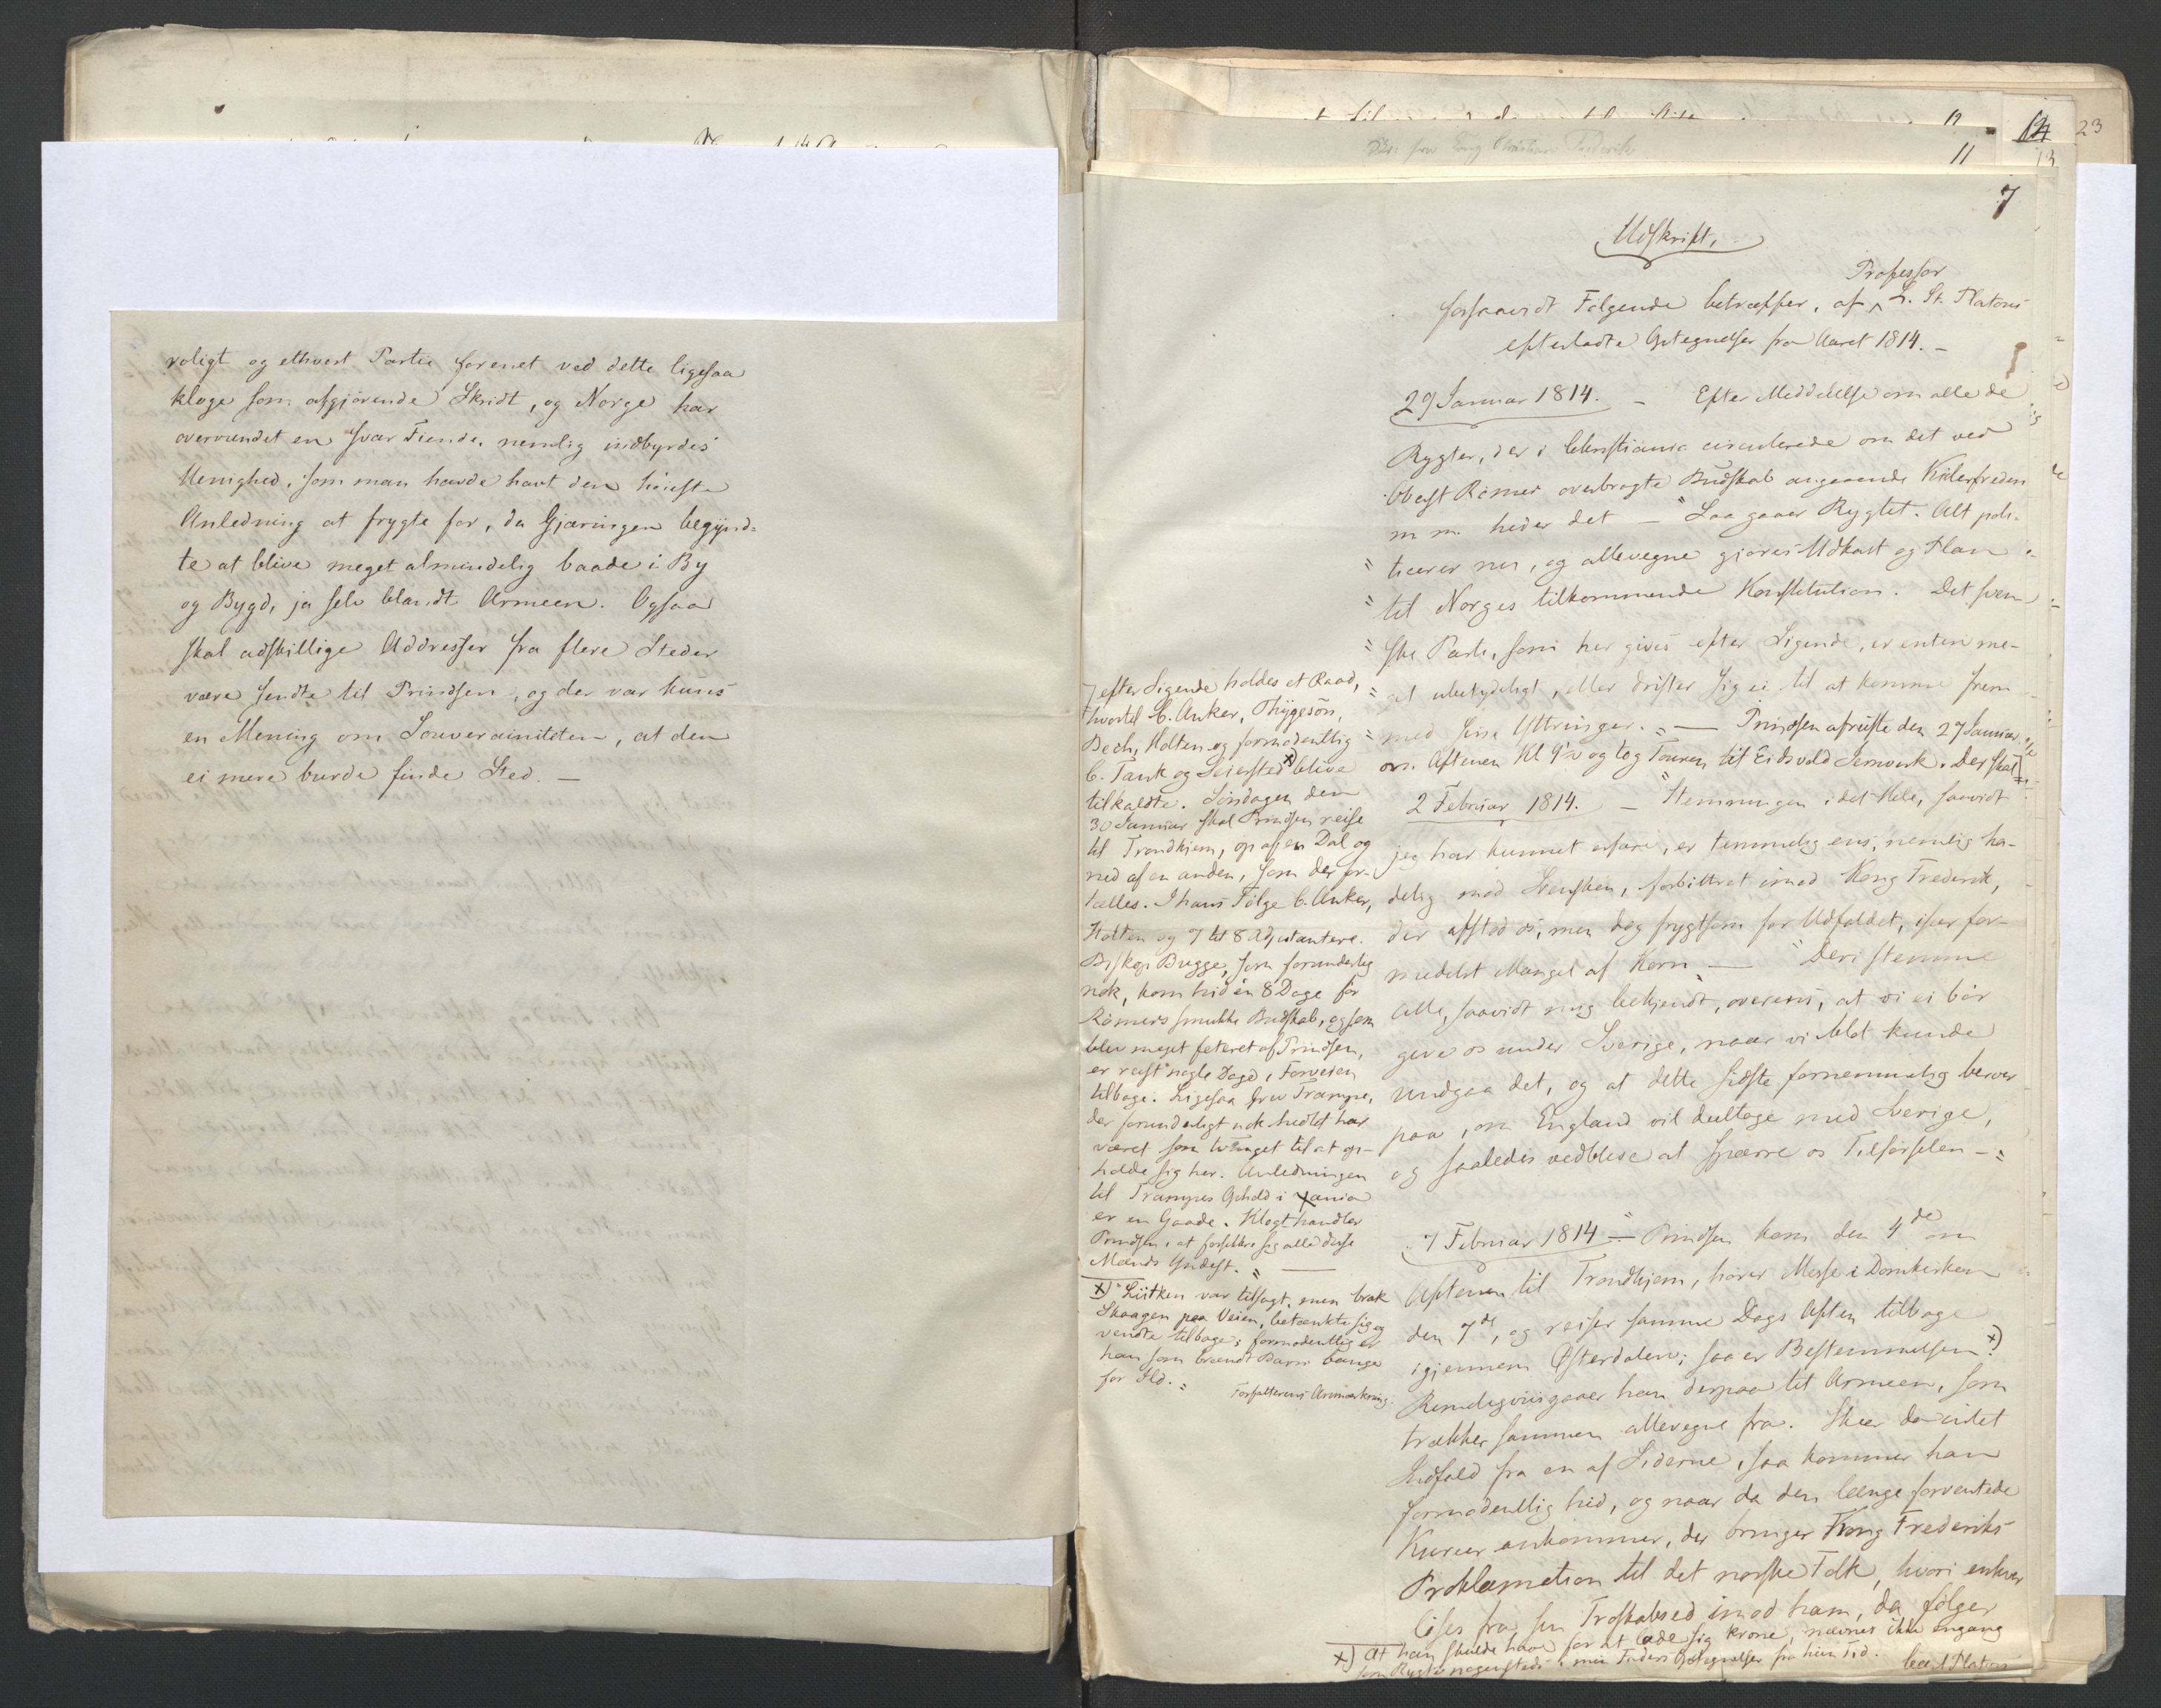 roligt og ethvert Partie forenet ved dette ligesaa
kloge som afgjørende Skridt, og Norge har
overvundet en svær Fiende, nemlig indbyrdes
Uenighed, som man havde havt den høieste
Anledning at frygte for, da Gjæringen begynd-
te at blive meget almindelig baade i By
og Bygd, ja selv blandt Armeen. Ogsaa
skal adskillige Addresser fra flere Steder
være sendte til Prindsen, og der var kuns
en Mening om Souverainiteten, at den
ei mere burde finde Sted. —
12
14
23
11
13
7
Udskrift,
Professor
forsaavidt Følgende betræffer, af L. St. Platous
efterladte Optegnelser fra Aaret 1814. —
29 Januar 1814. — Efter Meddelelse om alle de
Rygter, der i Christiania circulerede om det ved
Oberst Rømer overbragte Budskab angaaende Kielerfreden
m m. heder det — "Saa gaaer Rygtet. Alt poli-
" ticerer nu, og allevegne gjøres Udkast og Plan
" til Norges tilkommende Konstitution. Det sven-
" ske Parti, som her gives efter Sigende, er enten me-
" get ubetydeligt, eller drister sig ei til at komme frem
" med sine Yttringer." — Prindsen afreiste den 27 Januar
om Aftenen Kl 9½ og tog Touren til Eidsvold Jernværk. Der skal
2 Februar 1814. — "Stemningen i det Hele, saavidt
jeg har kunnet erfare, er temmelig ens, nemlig ha-
delig mod Svensken, forbittret imod Kong Frederik,
der afstod os, men dog frygtsom for Udfaldet, især for-
medelst Mangel af Korn" — "Deri stemme
Alle, saavidt mig bekjendt, overens, at vi ei bør
give os under Sverige, naar vi blot kunde
undgaa det, og at dette sidste fornemmelig beroer
paa, om England vil deeltage med Sverige,
og saaledes vedblive at spærre os Tilførselen —"
7 Februar 1814 — "Prindsen kom den 4de om
Aftenen til Trondhjem, hører Messe i Domkirken
den 7de, og reiser samme Dags Aften tilbage
igjennem Østerdalen; saa er Bestemmelsen. x)
Rimeligviis gaaer han derpaa til Armeen, som
trækker sammen allevegne fra. Skeer da intet
Indfald fra en af Siderne, saa kommer han
formodentlig hid, og naar da den længe forventede
Kureer ankommer, der bringer Kong Frederiks
Proklamation til det norske Folk, hvori enhver
løses fra sin Troskabsed imod ham, da følger
x) At han skulde have for at lade sig krone, nævnes ikke engang
som Rygte nogensteds i min Faders Optegnelser fra hiin Tid.
efter Sigende holdes et Raad,
hvortil C. Anker, Thygeson,
Bech, Holten og formodentlig
C. Tank og Seiersted x) blive
tilkaldte. Søndagen den
30 Januar skal Prindsen reise
til Trondhjem, op af en Dal og
ned af en anden, som der for-
tælles. I hans Følge C. Anker,
Holten og 7 til 8 Adjutantere.
Biskop Bugge, som forunderlig
nok, kom hid en 8 Dage før
Rømers smukke Budskab, og som
blev meget feteret af Prindsen,
er reist nogle Dage i Forveien
tilbage. Ligesaa Grev Trampe,
der forunderligt nok hidtil har
været som tvunget til at op-
holde sig her. Anledningen
til Trampes Ophold i Xania
er en Gaade. Klogt handler
Prindsen, i at forsikkre sig alle disse
Mænds Yndest." —
x) "Lütken var tilsagt, men brak
Skaagen paa Veien, betænkte sig og
vendte tilbage; formodentlig er
han som brændt Barn bange
for Ild."
Forfatterens Anmærkning.